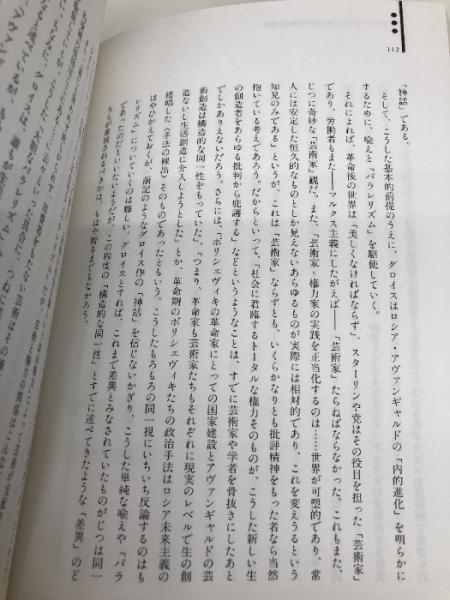 112
"神話"である。
そして、こうした基本的前提のうえに、グロイスはロシア・アヴァンギャルドの「内的進化」を明らかに
するために、喩えと「パラレリズム」を駆使していく。
それによれば、革命後の世界は「美しくなければならず」、スターリンや党はその役目を担った「芸術家」
であり、労働者もまた――マルクス主義にしたがえば――「芸術家」たらねばならなかった。これもまた、
じつに奇妙な「芸術家」観だ。また、「芸術家=権力家の実践を正当化するのは……世界が可塑的であり、常
人には安定した恒久的なものとしか見えないあらゆるものが実際には相対的であり、これを変えうるという
知見のみである」というが、これは「芸術家」ならずとも、いくらかなりとも批評精神をもった者なら当然
抱いている考えであろう。だからといって、「社会に君臨するトータルな権力そのものが、こうした新しい生
の創造者をあらゆる批判から庇護する」などというようなことは、すでに芸術家や学者を骨抜きにしたあと
でしかありえないだろう。さらには、「ボリシェヴィキの革命家にとっての国家建設とアヴァンギャルドの芸
術創造は構造的な同一性をもっていた」、「つまり、革命家も芸術家たちもそれぞれに現実のレベルで生の創
造ないし生活創造に介入しようとした」とか、革命期のボリシェヴィキたちの政治手法はロシア未来主義の
提唱した〈手法の裸出〉そのものであったともいう。こうしたもろもろの同一視にいちいち反論するのはも
はやひかえておくが、前記のようなグロイス作の「神話」を信じないかぎり、こうした単純な喩えや「パラ
レリズム」についていくのは難しい。グロイスとすれば、これまで差異とみなされていたものがじつは同一
であったのだといいたいようだが、この程度の「構造的な同一性」とすでに述べてきたような「差異」のど
ちらが重視されるべきかは、もはや断るまでもなかろう。